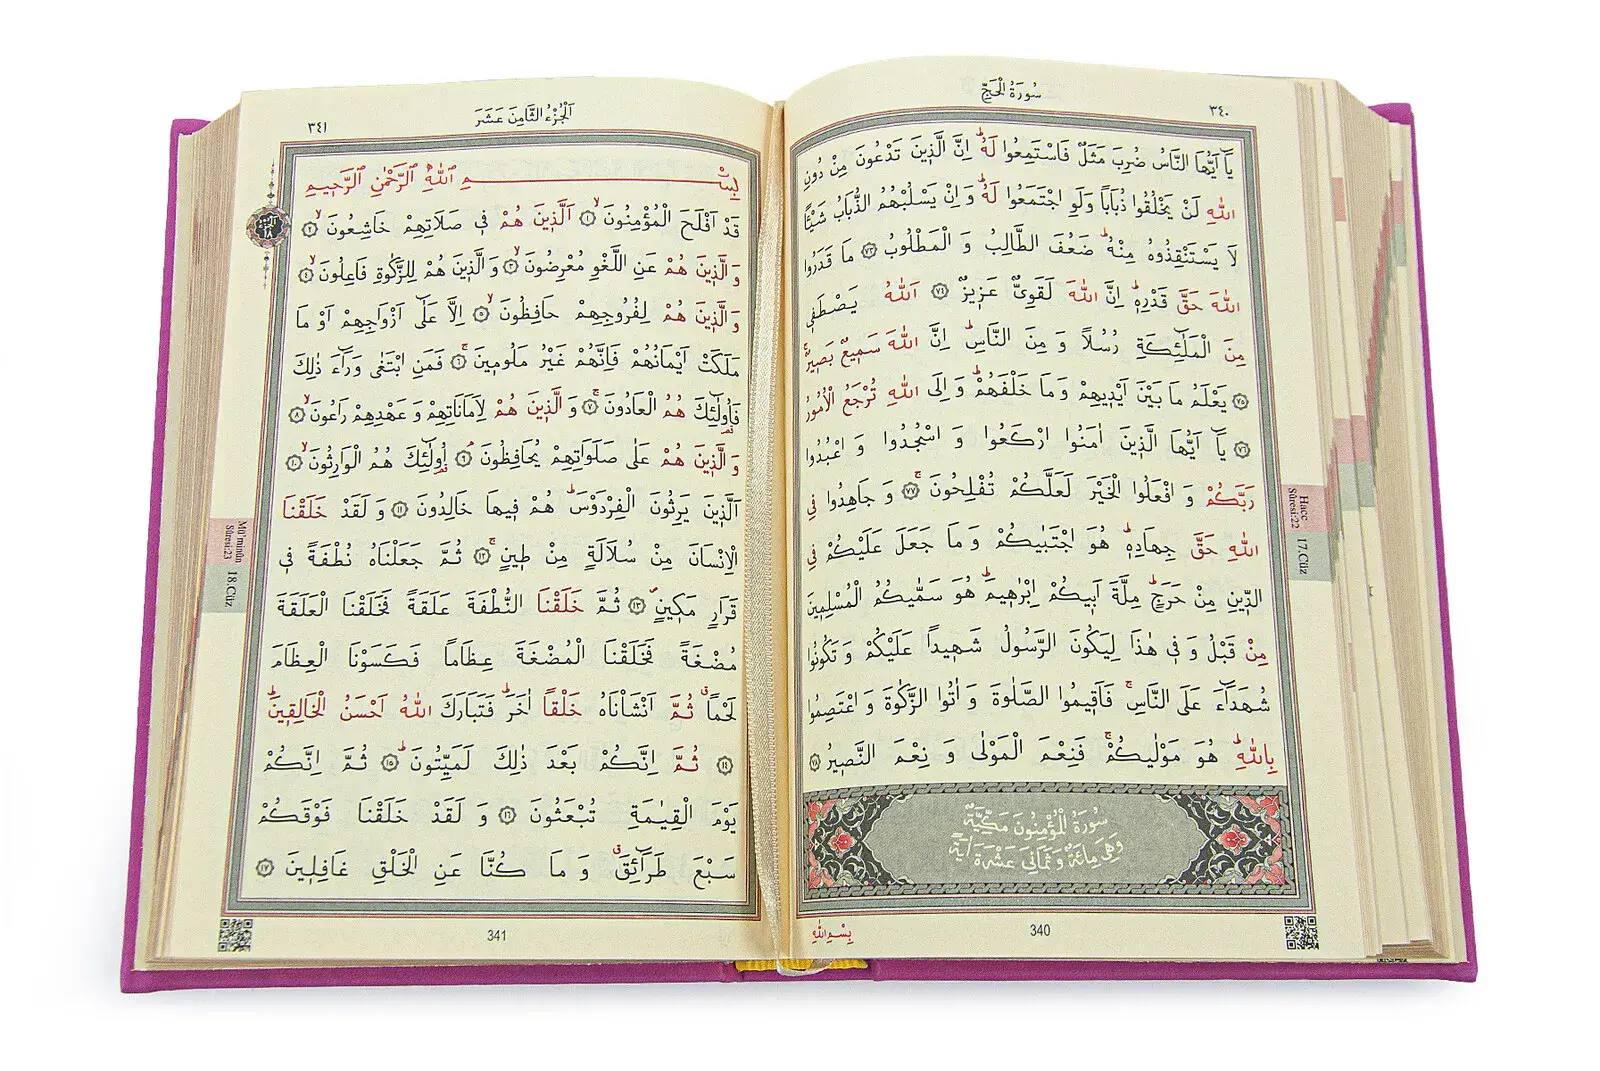 سُورَةُ الْحَجِّ
٣٤٠
يَٓا اَيُّهَا النَّاسُ ضُرِبَ مَثَلٌ فَاسْتَمِعُوا لَهُۜ اِنَّ الَّذٖينَ تَدْعُونَ مِنْ دُونِ
اللّٰهِ لَنْ يَخْلُقُوا ذُبَاباً وَلَوِ اجْتَمَعُوا لَهُۜ وَاِنْ يَسْلُبْهُمُ الذُّبَابُ شَيْـٔاً
لَا يَسْتَنْقِذُوهُ مِنْهُۜ ضَعُفَ الطَّالِبُ وَالْمَطْلُوبُ ﴿٧٣﴾ مَا قَدَرُوا
اللّٰهَ حَقَّ قَدْرِهٖۜ اِنَّ اللّٰهَ لَقَوِيٌّ عَزٖيزٌ ﴿٧٤﴾ اَللّٰهُ يَصْطَفٖي
مِنَ الْمَلٰٓئِكَةِ رُسُلاً وَمِنَ النَّاسِۜ اِنَّ اللّٰهَ سَمٖيعٌ بَصٖيرٌۚ
﴿٧٥﴾ يَعْلَمُ مَا بَيْنَ اَيْدٖيهِمْ وَمَا خَلْفَهُمْۜ وَاِلَى اللّٰهِ تُرْجَعُ الْاُمُورُ
﴿٧٦﴾ يَٓا اَيُّهَا الَّذٖينَ اٰمَنُوا ارْكَعُوا وَاسْجُدُوا وَاعْبُدُوا
رَبَّكُمْ وَافْعَلُوا الْخَيْرَ لَعَلَّكُمْ تُفْلِحُونَۚ ﴿٧٧﴾ وَجَاهِدُوا فِي
اللّٰهِ حَقَّ جِهَادِهٖۜ هُوَ اجْتَبٰيكُمْ وَمَا جَعَلَ عَلَيْكُمْ فِي
الدّٖينِ مِنْ حَرَجٍۜ مِلَّةَ اَبٖيكُمْ اِبْرٰهٖيمَۜ هُوَ سَمّٰيكُمُ الْمُسْلِمٖينَ
مِنْ قَبْلُ وَفٖي هٰذَا لِيَكُونَ الرَّسُولُ شَهٖيداً عَلَيْكُمْ وَتَكُونُوا
شُهَدَٓاءَ عَلَى النَّاسِۚ فَاَقٖيمُوا الصَّلٰوةَ وَاٰتُوا الزَّكٰوةَ وَاعْتَصِمُوا
بِاللّٰهِۜ هُوَ مَوْلٰيكُمْۚ فَنِعْمَ الْمَوْلٰى وَنِعْمَ النَّصٖيرُ ﴿٧٨﴾
سُورَةُ الْمُؤْمِنُونَ مَكِّيَّةٌ
وَهِيَ مِائَةٌ وَثَمَانِيَ عَشْرَةَ اٰيَةً
Hacc
Sûresi:22
17.Cüz
بِسْمِ اللّٰهِ
340
اَلْجُزْءُ الثَّامِنَ عَشَرَ
٣٤١
بِسْمِ اللّٰهِ الرَّحْمٰنِ الرَّحٖيمِ
قَدْ اَفْلَحَ الْمُؤْمِنُونَۙ ﴿١﴾ اَلَّذٖينَ هُمْ فٖي صَلَاتِهِمْ خَاشِعُونَۙ ﴿٢﴾
وَالَّذٖينَ هُمْ عَنِ اللَّغْوِ مُعْرِضُونَۙ ﴿٣﴾ وَالَّذٖينَ هُمْ لِلزَّكٰوةِ فَاعِلُونَۙ ﴿٤﴾
وَالَّذٖينَ هُمْ لِفُرُوجِهِمْ حَافِظُونَۙ ﴿٥﴾ اِلَّا عَلٰٓى اَزْوَاجِهِمْ اَوْ مَا
مَلَكَتْ اَيْمَانُهُمْ فَاِنَّهُمْ غَيْرُ مَلُومٖينَۚ ﴿٦﴾ فَمَنِ ابْتَغٰى وَرَٓاءَ ذٰلِكَ
فَاُو۬لٰٓئِكَ هُمُ الْعَادُونَۚ ﴿٧﴾ وَالَّذٖينَ هُمْ لِاَمَانَاتِهِمْ وَعَهْدِهِمْ رَاعُونَۙ ﴿٨﴾
وَالَّذٖينَ هُمْ عَلٰى صَلَوَاتِهِمْ يُحَافِظُونَۢ ﴿٩﴾ اُو۬لٰٓئِكَ هُمُ الْوَارِثُونَۙ ﴿١٠﴾
اَلَّذٖينَ يَرِثُونَ الْفِرْدَوْسَۜ هُمْ فٖيهَا خَالِدُونَ ﴿١١﴾ وَلَقَدْ خَلَقْنَا
الْاِنْسَانَ مِنْ سُلَالَةٍ مِنْ طٖينٍۚ ﴿١٢﴾ ثُمَّ جَعَلْنَاهُ نُطْفَةً فٖي
قَرَارٍ مَكٖينٍۖ ﴿١٣﴾ ثُمَّ خَلَقْنَا النُّطْفَةَ عَلَقَةً فَخَلَقْنَا الْعَلَقَةَ
مُضْغَةً فَخَلَقْنَا الْمُضْغَةَ عِظَاماً فَكَسَوْنَا الْعِظَامَ
لَحْماًۗ ثُمَّ اَنْشَاْنَاهُ خَلْقاً اٰخَرَۜ فَتَبَارَكَ اللّٰهُ اَحْسَنُ الْخَالِقٖينَۜ
﴿١٤﴾ ثُمَّ اِنَّكُمْ بَعْدَ ذٰلِكَ لَمَيِّتُونَۜ ﴿١٥﴾ ثُمَّ اِنَّكُمْ
يَوْمَ الْقِيٰمَةِ تُبْعَثُونَ ﴿١٦﴾ وَلَقَدْ خَلَقْنَا فَوْقَكُمْ
سَبْعَ طَرَٓائِقَۗ وَمَا كُنَّا عَنِ الْخَلْقِ غَافِلٖينَ ﴿١٧﴾
Mü'minûn
Sûresi:23
18.Cüz
341